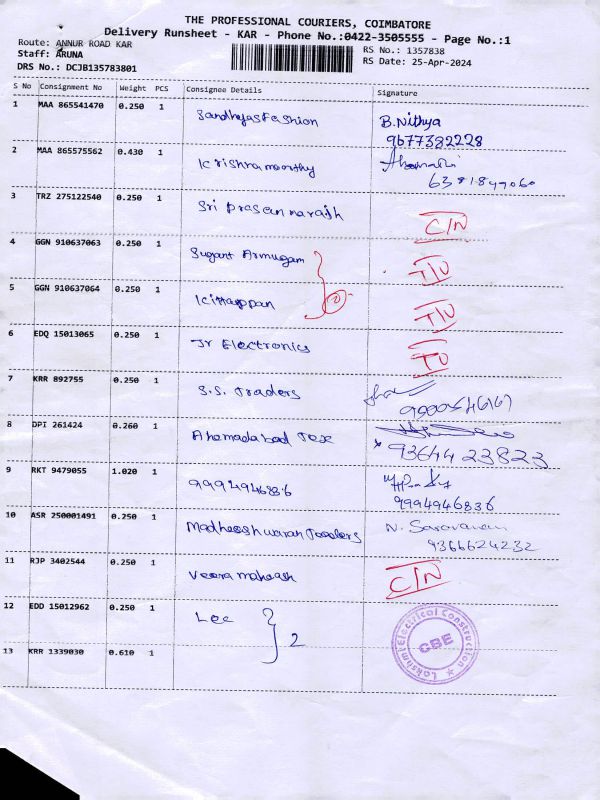 THE PROFESSIONAL COURIERS, COIMBATORE
Delivery Runsheet - KAR - Phone No.:0422-3505555 - Page No.:1
Route: ANNUR ROAD KAR
Staff: ARUNA
DRS No.: DCJB135783801
RS No.: 1357838
RS Date: 25-Apr-2024
S No Consignment No Weight PCS Consignee Details Signature
1 MAA 865541470 0.250 1 Sandhyas Fashion B.Nithya
9677382228
2 MAA 865575562 0.430 1 Krishnamoorthy
6381847060
3 TRZ 275122540 0.250 1 Sri Prasannarajh C/N
4 GGN 910637063 0.250 1 Sugant Armugam T/U
5 GGN 910637064 0.250 1 Kittappan T/U
2
6 EDQ 15013065 0.250 1 Jr Electronics TU
7 KRR 892755 0.250 1 S.S. Traders
8 DPI 261424 0.260 1 Ahamadabad Tex
9364423823
9 RKT 9479055 1.020 1 9994946836
9994946836
10 ASR 250001491 0.250 1 Madheeshwaran N. Saravanan
9366624232
11 RJP 3402544 0.250 1 Veera mahesh C/N
12 EDD 15012962 0.250 1 Lee
2
13 KRR 1339030 0.610 1
Lakshmi Electrical Construction
CBE